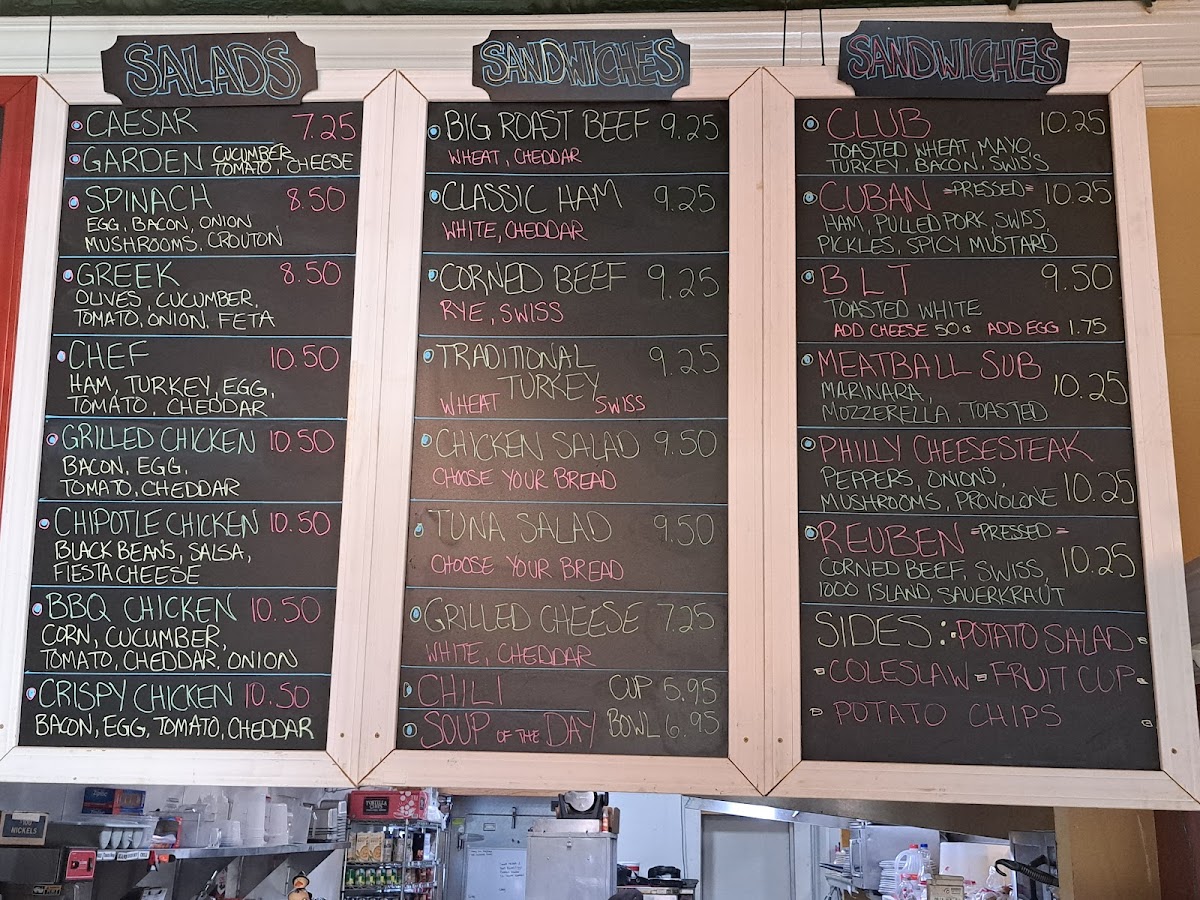 SALADS
CAESAR 7.25
GARDEN CUCUMBER
TOMATO, CHEESE
SPINACH 8.50
EGG, BACON, ONION
MUSHROOMS, CROUTON
GREEK 8.50
OLIVES, CUCUMBER,
TOMATO, ONION, FETA
CHEF 10.50
HAM, TURKEY, EGG,
TOMATO, CHEDDAR
GRILLED CHICKEN 10.50
BACON, EGG,
TOMATO, CHEDDAR
CHIPOTLE CHICKEN 10.50
BLACK BEANS, SALSA,
FIESTA CHEESE
BBQ CHICKEN 10.50
CORN, CUCUMBER,
TOMATO, CHEDDAR, ONION
CRISPY CHICKEN 10.50
BACON, EGG, TOMATO, CHEDDAR
SANDWICHES
BIG ROAST BEEF 9.25
WHEAT, CHEDDAR
CLASSIC HAM 9.25
WHITE, CHEDDAR
CORNED BEEF 9.25
RYE, SWISS
TRADITIONAL 9.25
TURKEY
WHEAT SWISS
CHICKEN SALAD 9.50
CHOOSE YOUR BREAD
TUNA SALAD 9.50
CHOOSE YOUR BREAD
GRILLED CHEESE 7.25
WHITE, CHEDDAR
CHILI CUP 5.95
SOUP OF THE DAY BOWL 6.95
SANDWICHES
CLUB 10.25
TOASTED WHEAT, MAYO,
TURKEY, BACON, SWISS
CUBAN =PRESSED= 10.25
HAM, PULLED PORK, SWISS,
PICKLES, SPICY MUSTARD
BLT 9.50
TOASTED WHITE
ADD CHEESE 50¢ ADD EGG 1.75
MEATBALL SUB
MARINARA, 10.25
MOZZERELLA, TOASTED
PHILLY CHEESESTEAK
PEPPERS, ONIONS,
MUSHROOMS, PROVOLONE 10.25
REUBEN =PRESSED=
CORNED BEEF, SWISS, 10.25
1000 ISLAND, SAUERKRAUT
SIDES: POTATO SALAD
COLESLAW - FRUIT CUP
POTATO CHIPS
NICKELS